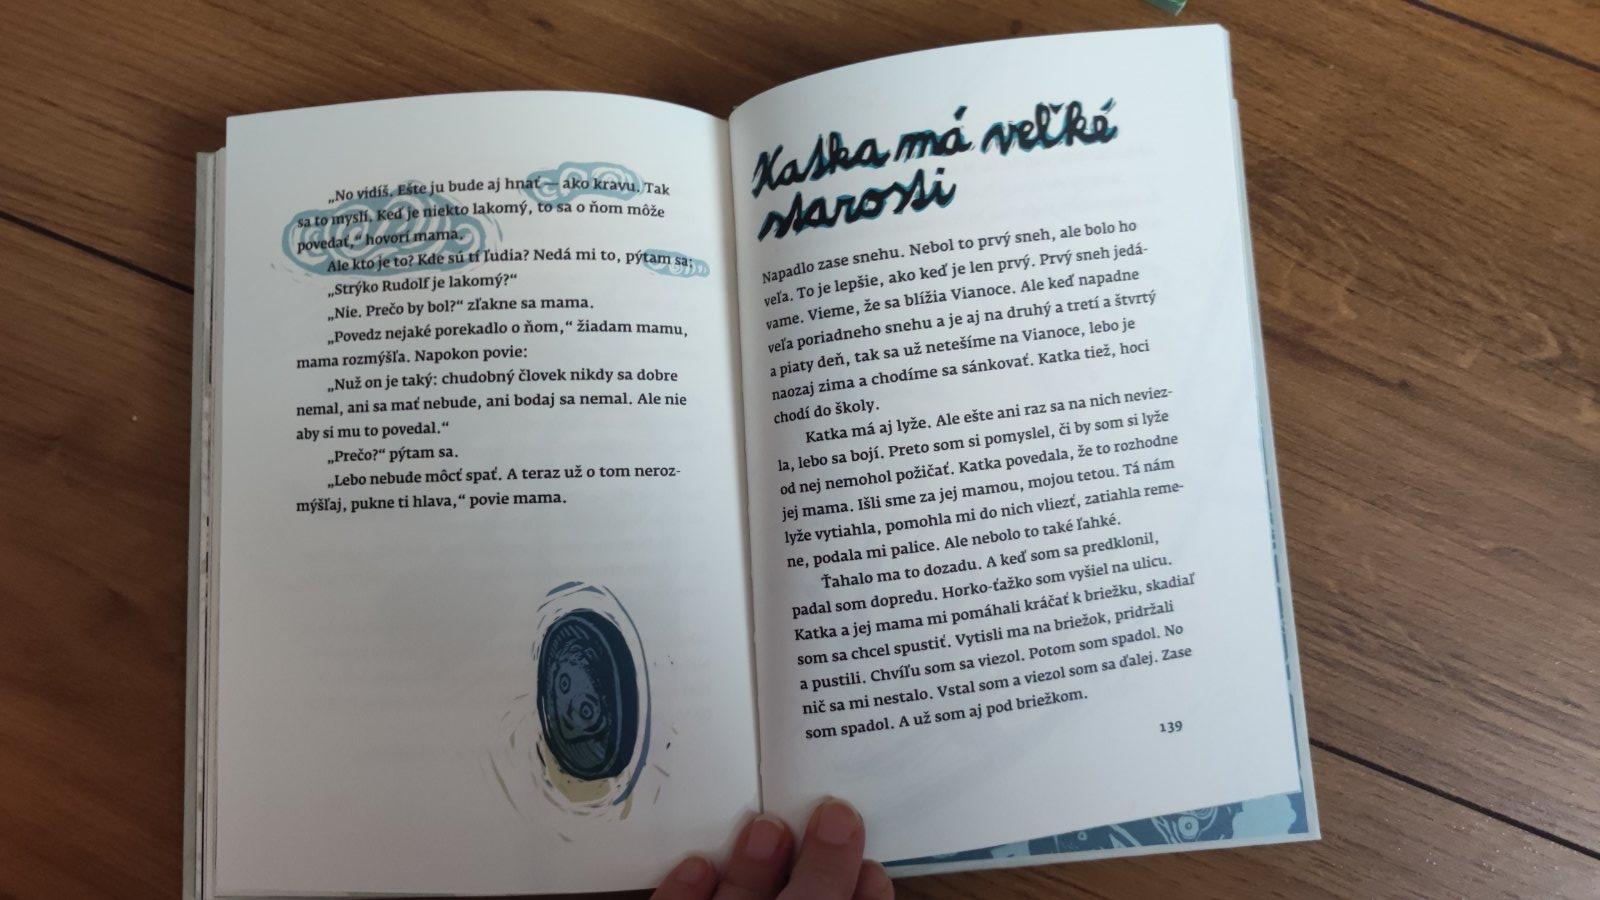 „No vidíš. Ešte ju bude aj hnať — ako kravu. Tak
sa to myslí. Keď je niekto lakomý, to sa o ňom môže
povedať,“ hovorí mama.
Ale kto je to? Kde sú tí ľudia? Nedá mi to, pýtam sa:
„Strýko Rudolf je lakomý?“
„Nie. Prečo by bol?“ zľakne sa mama.
„Povedz nejaké porekadlo o ňom,“ žiadam mamu,
mama rozmýšľa. Napokon povie:
„Nuž on je taký: chudobný človek nikdy sa dobre
nemal, ani sa mať nebude, ani bodaj sa nemal. Ale nie
aby si mu to povedal.“
„Prečo?“ pýtam sa.
„Lebo nebude môcť spať. A teraz už o tom neroz-
mýšľaj, pukne ti hlava,“ povie mama.
Katka má veľké
starosti
Napadlo zase snehu. Nebol to prvý sneh, ale bolo ho
veľa. To je lepšie, ako keď je len prvý. Prvý sneh jedá-
vame. Vieme, že sa blížia Vianoce. Ale keď napadne
veľa poriadneho snehu a je aj na druhý a tretí a štvrtý
a piaty deň, tak sa už netešíme na Vianoce, lebo je
naozaj zima a chodíme sa sánkovať. Katka tiež, hoci
chodí do školy.
Katka má aj lyže. Ale ešte ani raz sa na nich neviez-
la, lebo sa bojí. Preto som si pomyslel, či by som si lyže
od nej nemohol požičať. Katka povedala, že to rozhodne
jej mama. Išli sme za jej mamou, mojou tetou. Tá nám
lyže vytiahla, pomohla mi do nich vliezť, zatiahla reme-
ne, podala mi palice. Ale nebolo to také ľahké.
Ťahalo ma to dozadu. A keď som sa predklonil,
padal som dopredu. Horko-ťažko som vyšiel na ulicu.
Katka a jej mama mi pomáhali kráčať k briežku, skadiaľ
som sa chcel spustiť. Vytisli ma na briežok, pridržali
a pustili. Chvíľu som sa viezol. Potom som spadol. No
nič sa mi nestalo. Vstal som a viezol som sa ďalej. Zase
som spadol. A už som aj pod briežkom.
139